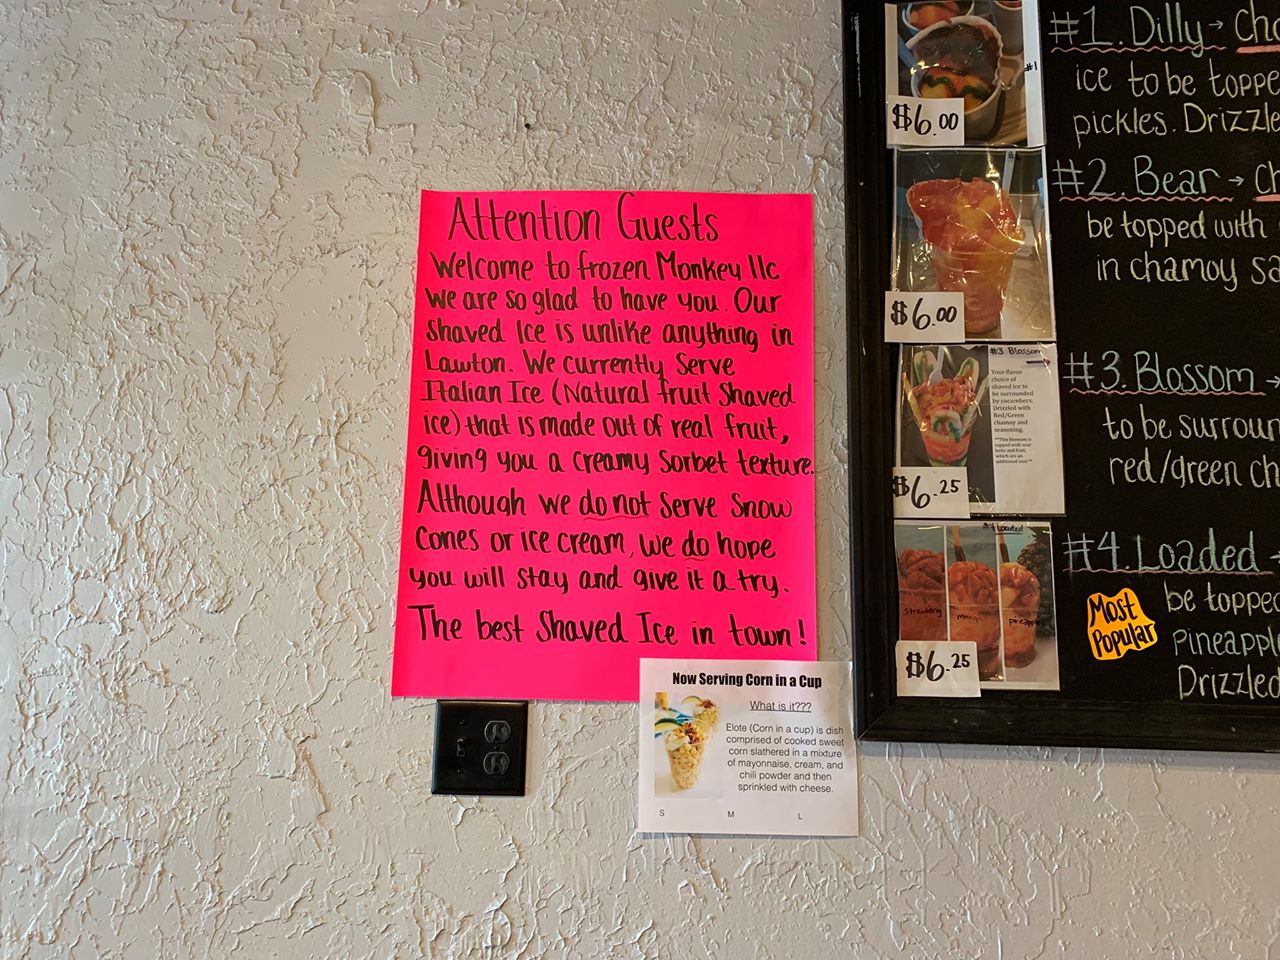 Attention Guests
Welcome to frozen Monkey llc
We are so glad to have you. Our
Shaved Ice is unlike anything in
Lawton. We currently Serve
Italian Ice (Natural fruit Shaved
ice) that is made out of real fruit,
giving you a creamy Sorbet texture.
Although we do not Serve Snow
Cones or ice cream, we do hope
you will stay and give it a try.
The best Shaved Ice in town!
Now Serving Corn in a Cup
What is it???
Elote (Corn in a cup) is dish
comprised of cooked sweet
corn slathered in a mixture
of mayonnaise, cream, and
chili powder and then
sprinkled with cheese.
S M L
#1
$6.00
$6.00
#3 Blossom
Your flavor
choice of
shaved ice to
be surrounded
by cucumbers.
Drizzled with
Red/Green
chamoy and
seasoning.
$6.25
#4 Loaded
Strawberry
mango
pineapple
$6.25
#1. Dilly → 
ice to be
pickles.
#2. Bear →
be topped with
in chamoy
#3. Blossom →
to be
red/green
#4. Loaded →
Most
Popular
be
Drizzled